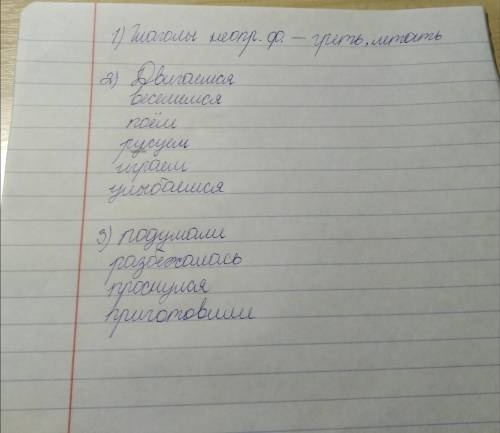 1) Глаголы неопр. ф. – греть, летать
2) Двигаемся
веселимся
поём
русуем
играем
улыбаемся
3) подумали
разбежалась
проснулая
приготовили